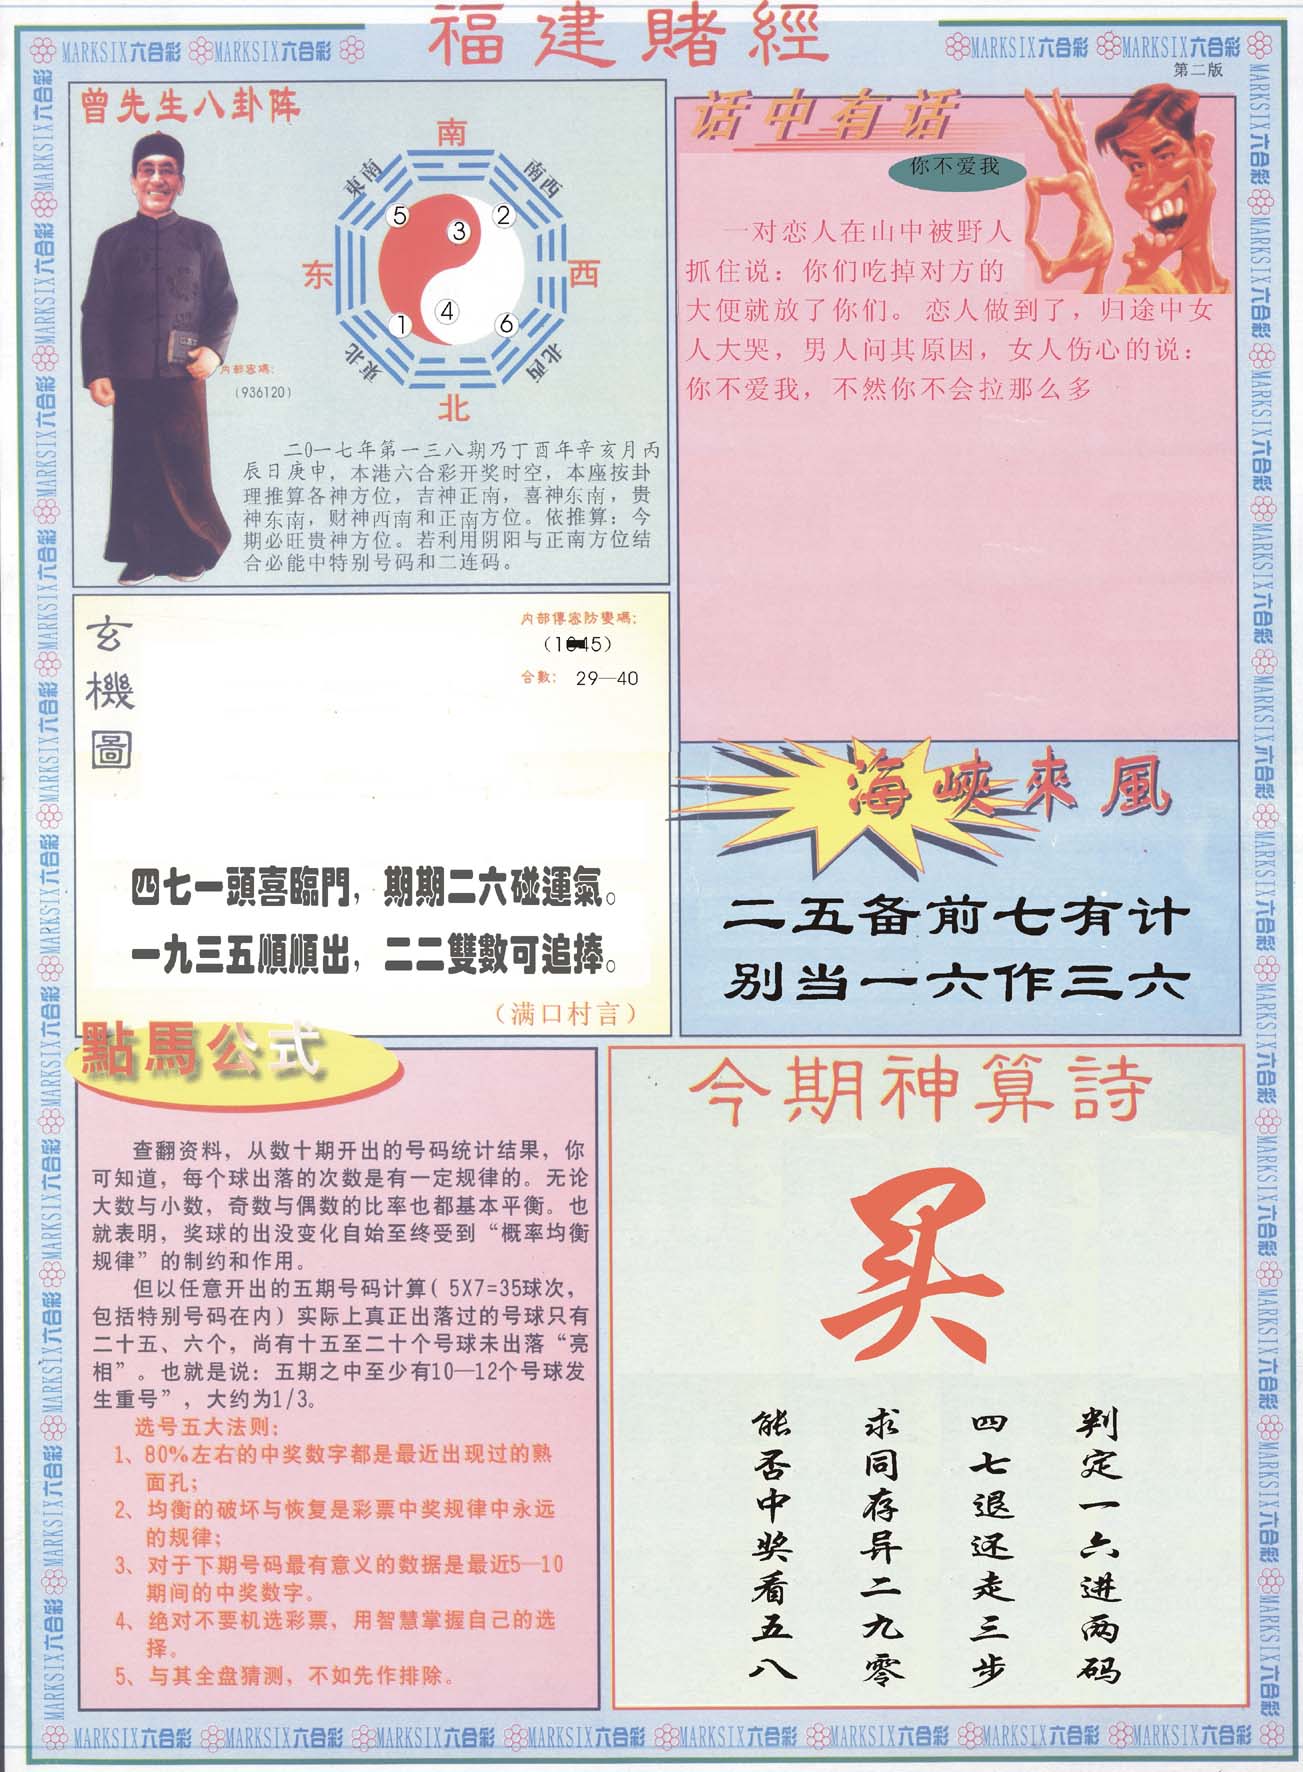 福建賭經
MARKSIX六合彩 MARKSIX六合彩
MARKSIX六合彩 MARKSIX六合彩
第二版
曾先生八卦阵
南
東南
南西
东
西
東北
北西
北
5
3
2
4
1
6
内部密碼:
(936120)
二0一七年第一三八期乃丁酉年辛亥月丙
辰日庚申，本港六合彩开奖时空，本座按卦
理推算各神方位，吉神正南，喜神东南，贵
神东南，财神西南和正南方位。依推算：今
期必旺贵神方位。若利用阴阳与正南方位结
合必能中特别号码和二连码。
话中有话
你不爱我
一对恋人在山中被野人
抓住说：你们吃掉对方的
大便就放了你们。恋人做到了，归途中女
人大哭，男人问其原因，女人伤心的说：
你不爱我，不然你不会拉那么多
玄機圖
内部傳密防變碼:
合數: 29—40
四七一頭喜臨門，期期二六碰運氣。
一九三五順順出，二二雙數可追捧。
（满口村言）
海峽來風
二五备前七有计
别当一六作三六
點馬公式
查翻资料，从数十期开出的号码统计结果，你
可知道，每个球出落的次数是有一定规律的。无论
大数与小数，奇数与偶数的比率也都基本平衡。也
就表明，奖球的出没变化自始至终受到“概率均衡
规律”的制约和作用。
但以任意开出的五期号码计算( 5X7=35球次，
包括特别号码在内）实际上真正出落过的号球只有
二十五、六个，尚有十五至二十个号球未出落“亮
相”。也就是说：五期之中至少有10—12个号球发
生重号”，大约为1/3。
选号五大法则：
1、80%左右的中奖数字都是最近出现过的熟
面孔；
2、均衡的破坏与恢复是彩票中奖规律中永远
的规律；
3、对于下期号码最有意义的数据是最近5—10
期间的中奖数字。
4、绝对不要机选彩票，用智慧掌握自己的选
择。
5、与其全盘猜测，不如先作排除。
今期神算詩
买
判定一六进两码
四七退还走三步
求同存异二九零
能否中奖看五八
MARKSIX六合彩 MARKSIX六合彩 MARKSIX六合彩 MARKSIX六合彩 MARKSIX六合彩 MARKSIX六合彩 MARKSIX六合彩 MARKSIX六合彩